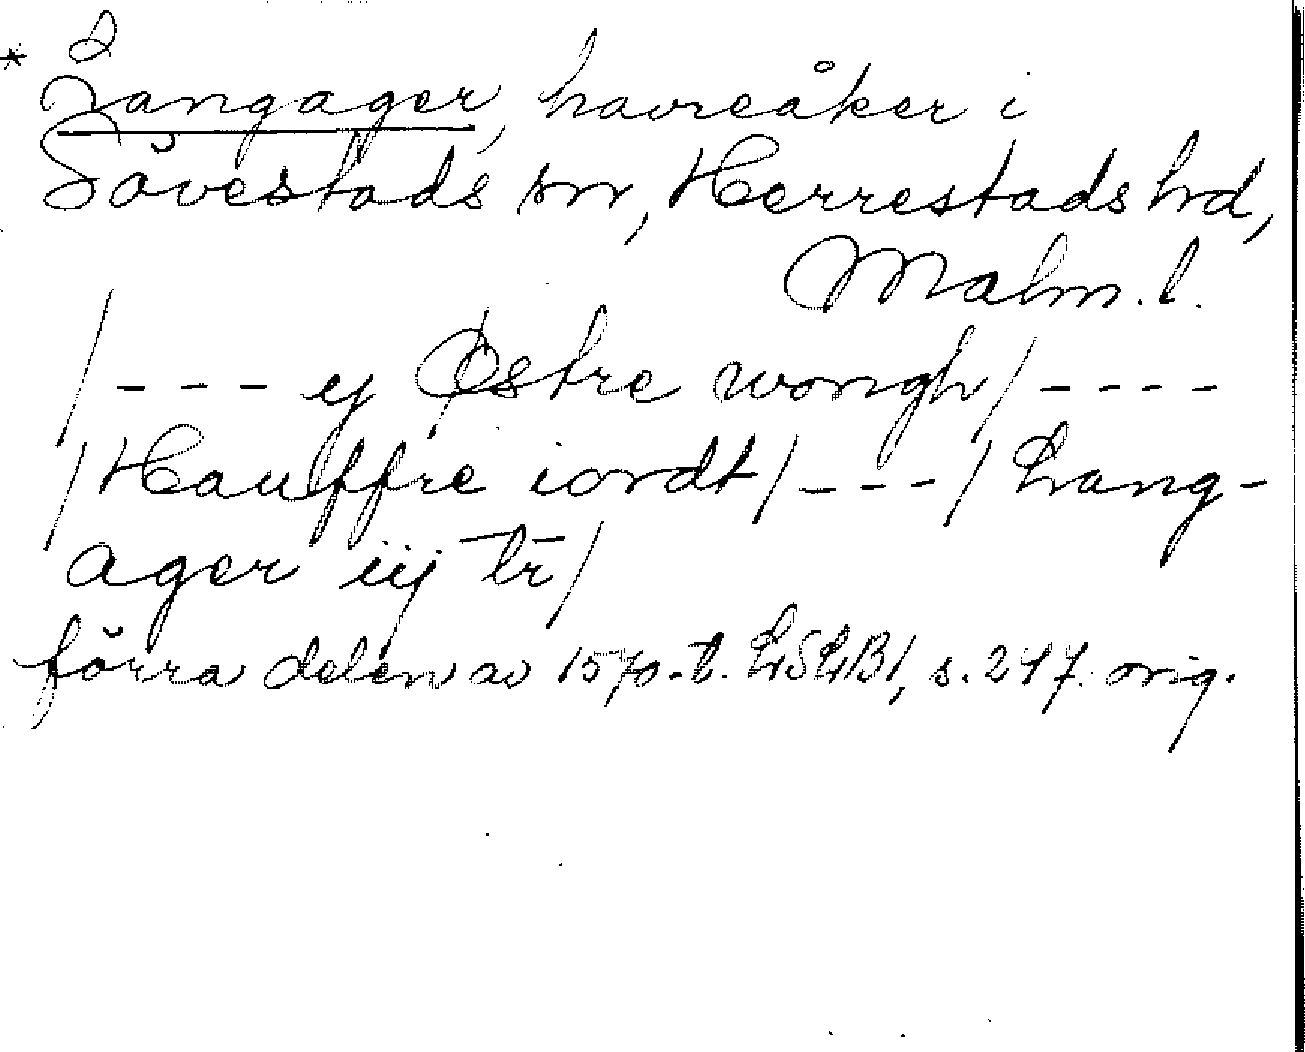 * Langager, havreåker i
Sövestads sn, Herrestads hd,
Malm. l.
/ - - - ej Østre wongh / - - - -
/ Hauffre iordt / - - - / Lang-
ager iij tr̄ /
förra delen av 1570-t. LSLB1, s. 247. orig.